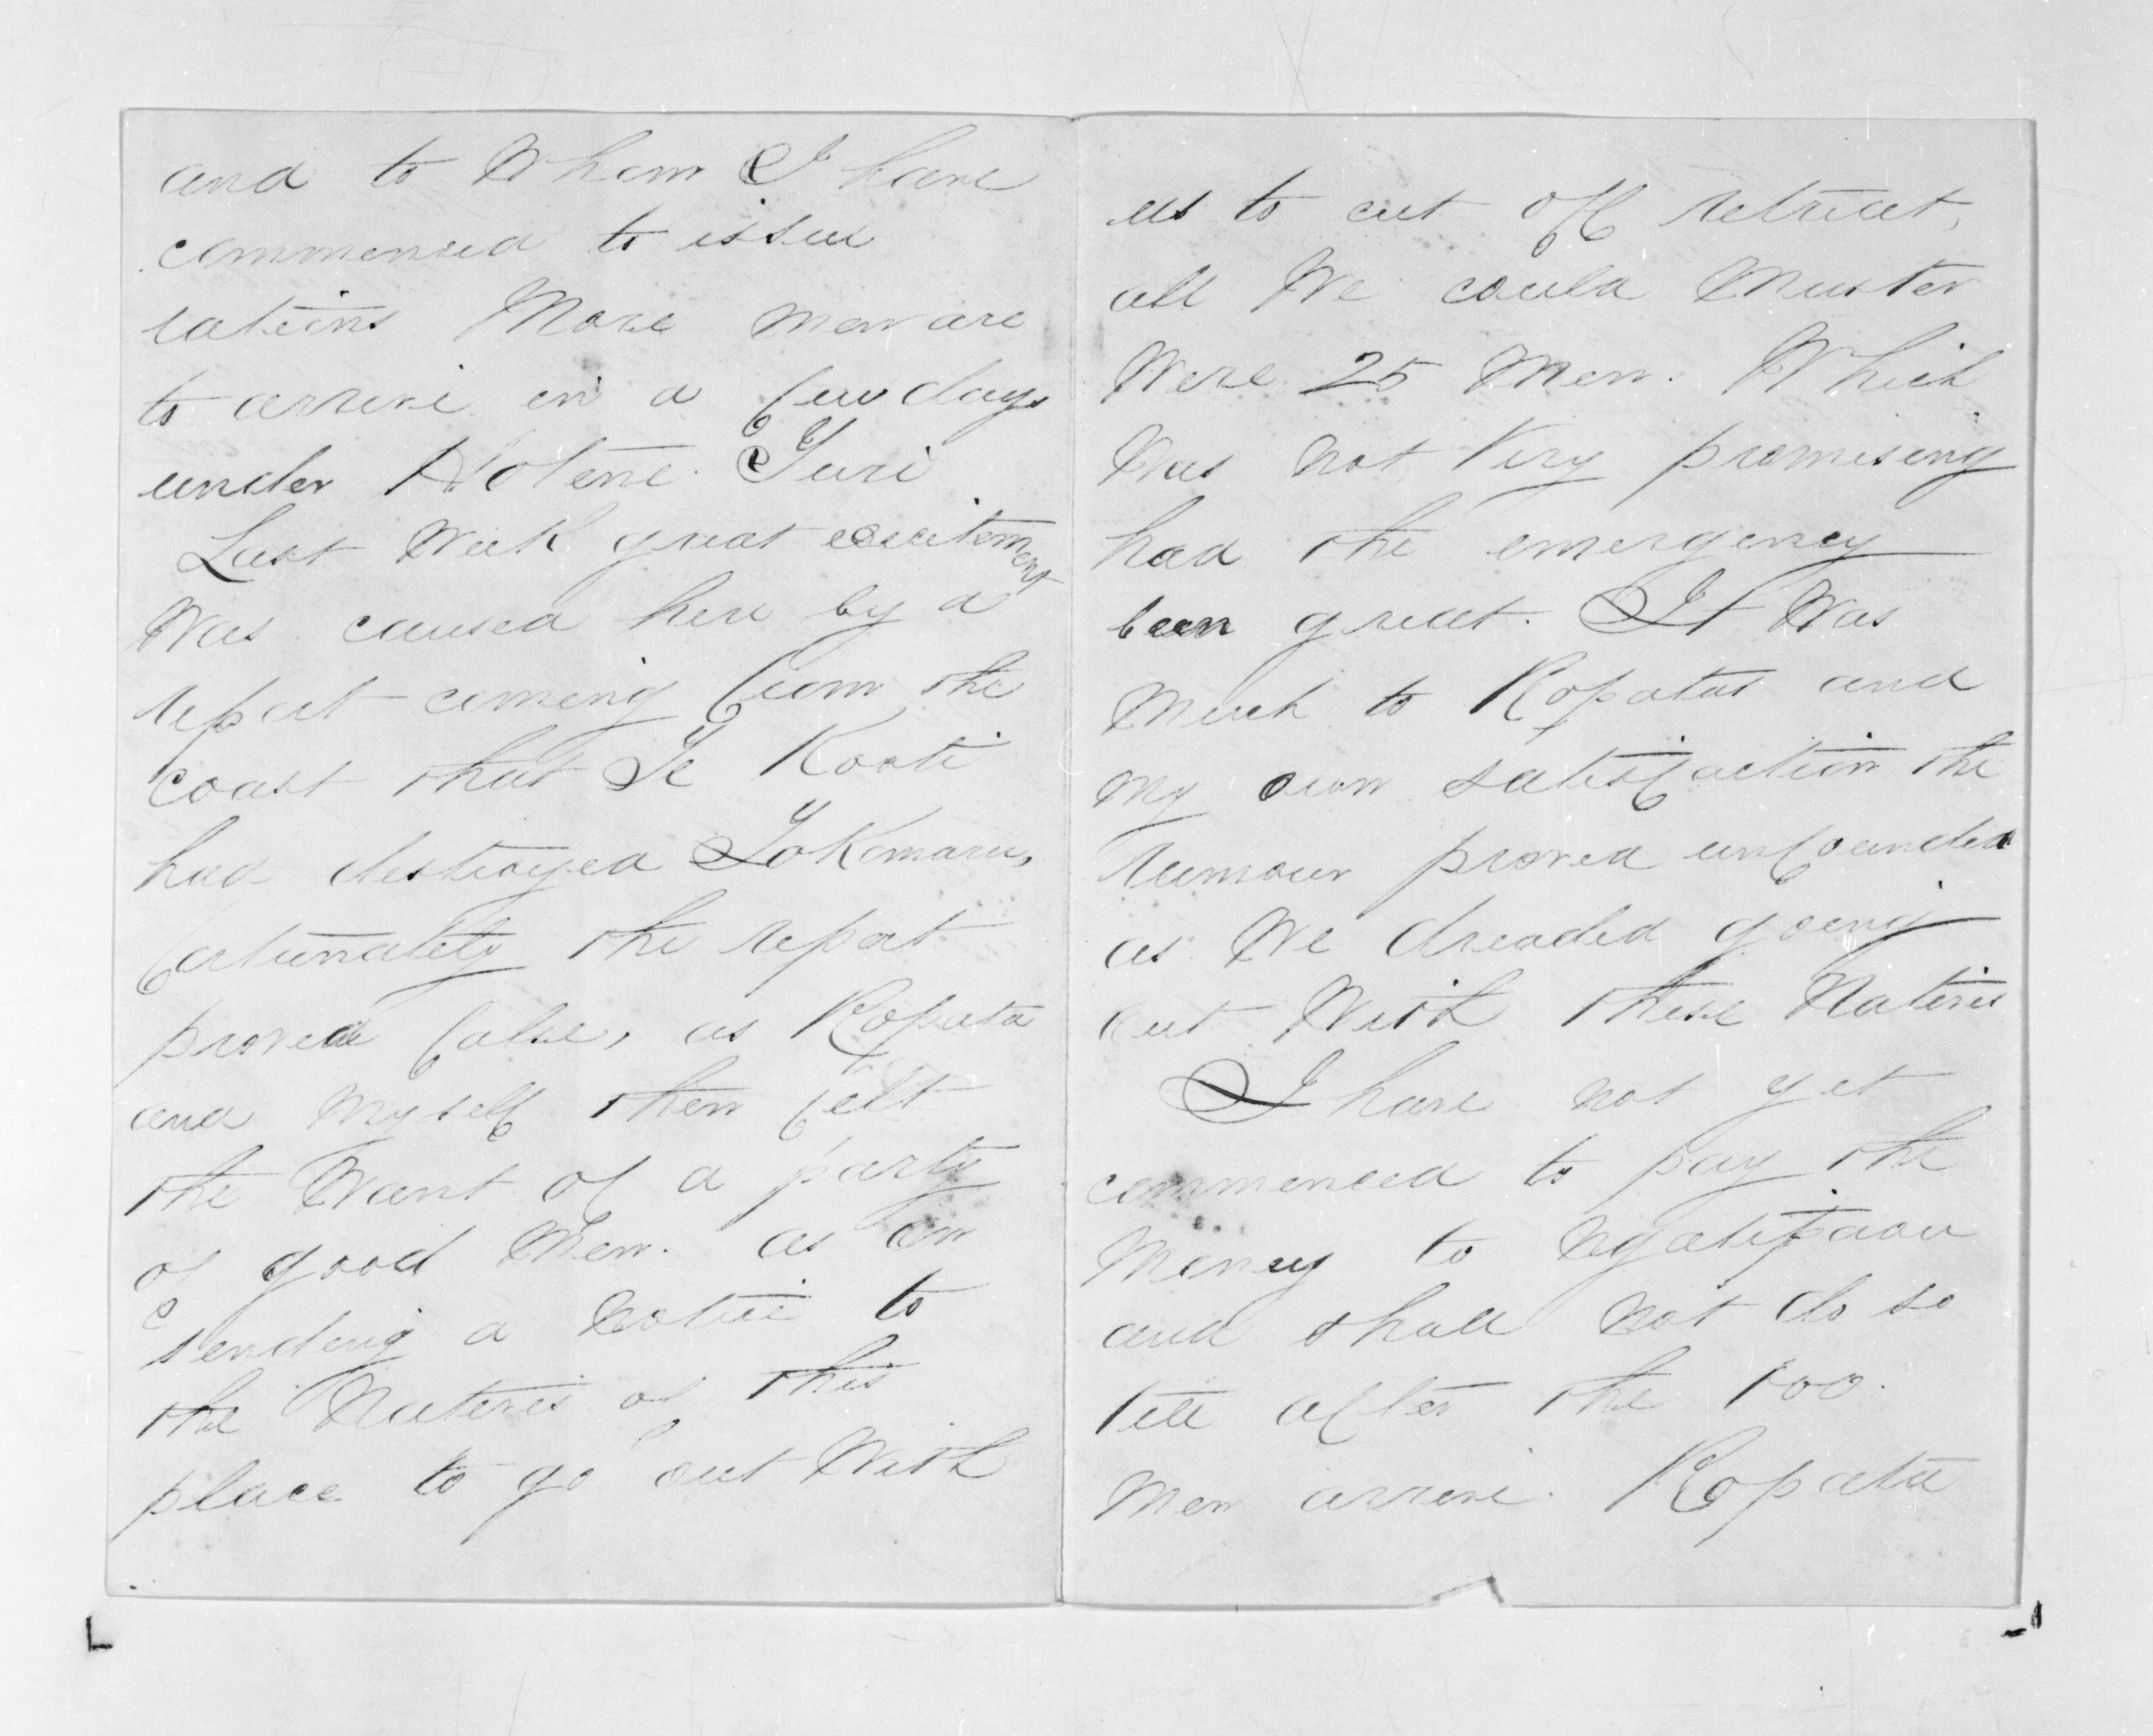 and to Whom I have
commenced to issue
rations More men are
to arrive in a few days
under Hotene. Turi
Last Week great excitement
Was caused here by a
report coming from the
coast that Te Kooti
had destroyed Tokomaru,
fortunately the report
proved false, as Ropata
and Myself then felt
the Want of a party
of good Men. as on
sending a Notice to
the Natives of this
place to go out With
us to cut off retreat,
all We could Muster
Were 25 Men. Which
Was not Very promising
had the emergency
been great. It Was
Much to Ropatas and
My own satisfaction the
rumour proved unfounded
as We dreaded going
out With these Natives
I have not yet
commenced to pay the
Money to Ngatiporou
and shall not do so
till after the 100.
Men arrive. Ropata